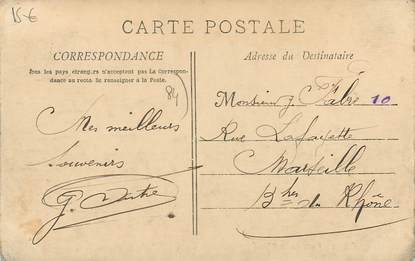 15€
CARTE POSTALE
CORRESPONDANCE
Tous les pays étrangers n'acceptent pas la Correspon-
dance au recto. Se renseigner à la Poste.
84
Mes meilleurs
souvenirs
Adresse du Destinataire
Monsieur J. Fabre 10
Rue Lafayette
Marseille
B.hes du Rhône